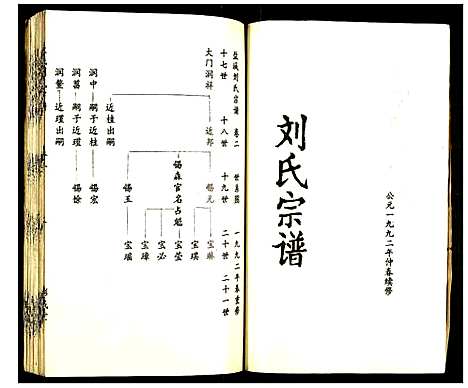 公元一九九二年仲春续修
刘氏宗谱
盐城刘氏宗谱 卷二 世系图 一九九二年春重修
十七世 十八世 十九世 二十世 二十一世
大门润祥
近邦 锡元 宝麟
宝琪
锡森官名占魁 宝莹
宝必
宝璋
锡玉 宝瑶
近桂出嗣
润中 嗣子近桂 锡宏
润菖 嗣子近瑾 锡馀
润鳌 近瑾出嗣